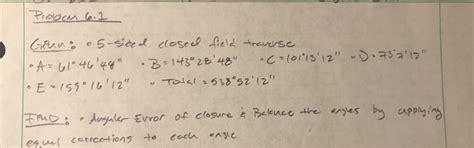 Problem 6.1
Given: • 5-sided closed field traverse
• A = 61° 46' 48" • B = 143° 28' 48" • C = 101° 13' 12" • D = 73° 7' 12"
• E = 159° 16' 12" • Total = 538° 52' 12"
FIND: • Angular Error of closure & Balance the angles by applying
equal corrections to each angle